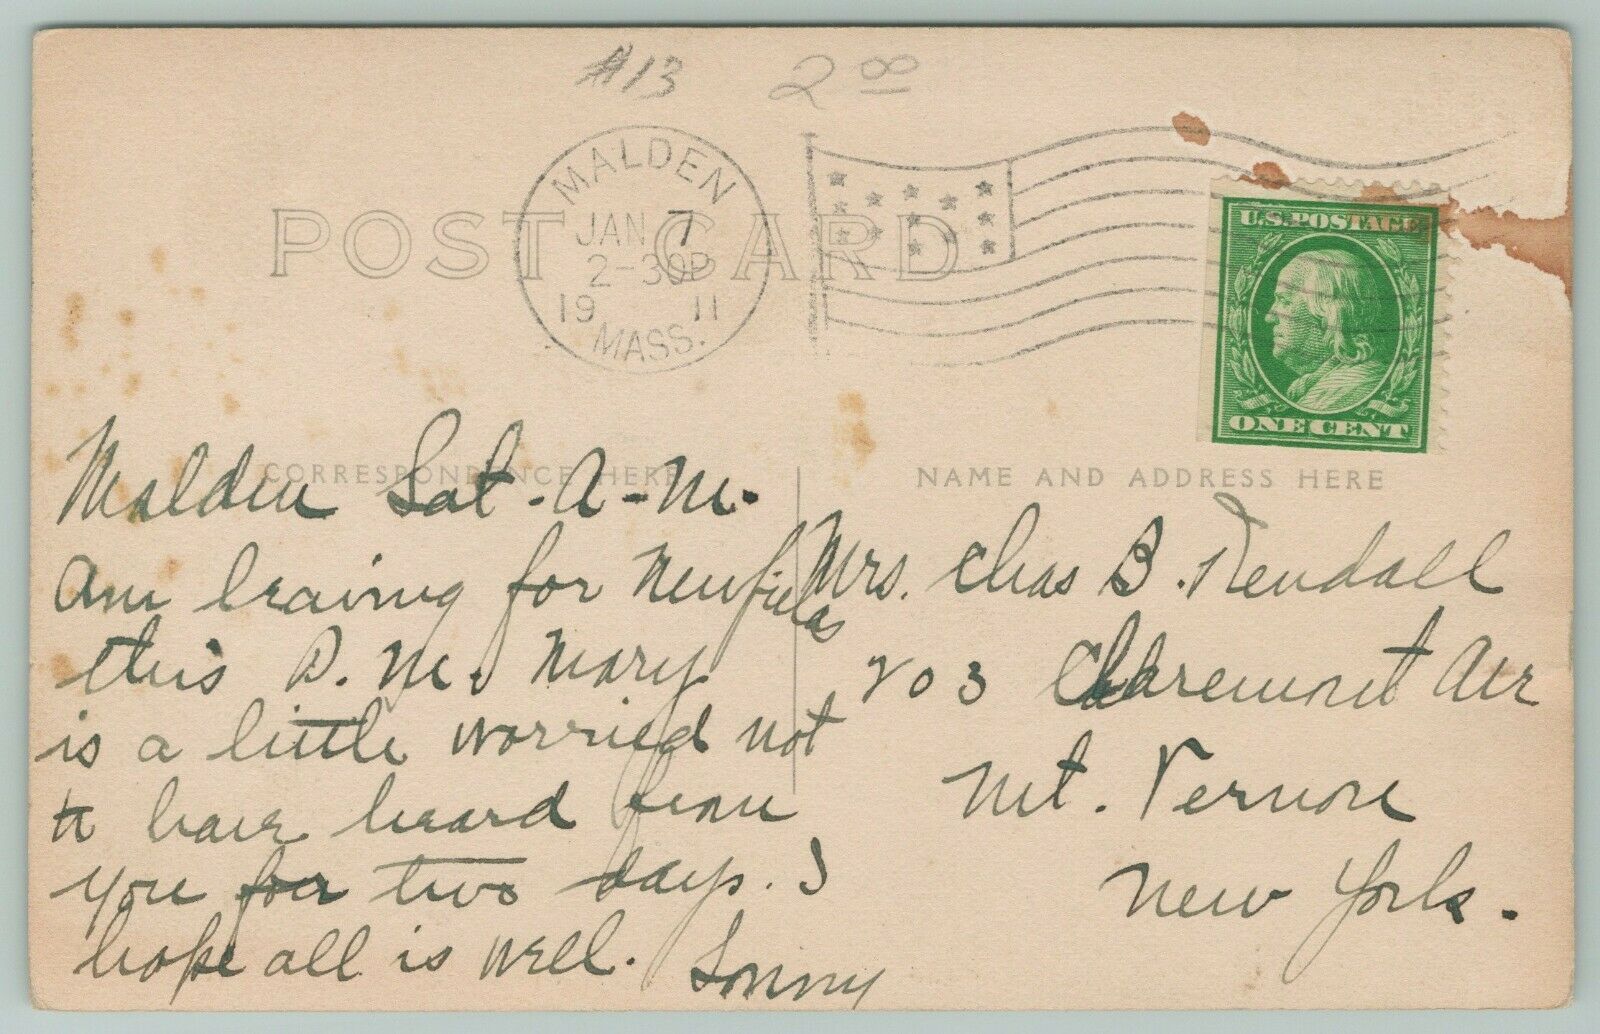 #13 2 00
MALDEN
JAN 7
2-30P
19 11
MASS.
POST CARD
U.S. POSTAGE
ONE CENT
CORRESPONDENCE HERE
NAME AND ADDRESS HERE
Malden Sat. A-M.
Am leaving for Newfields
this P. M. Mary
is a little worried not
to have heard from
you for two days. I
hope all is well. Sonny
Mrs. Chas B. Kendall
203 Claremont Ave
Mt. Vernon
New York.